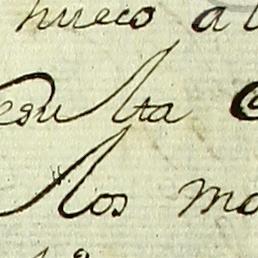 hueco a l
esulta C
los mo